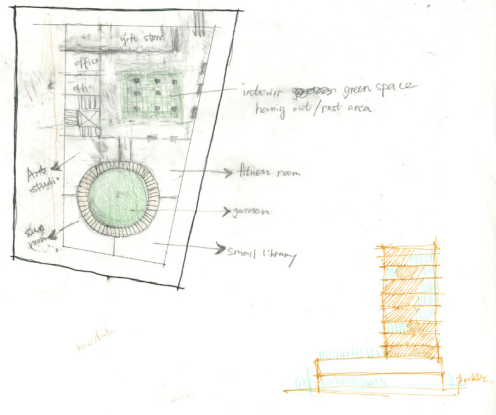 gift store
office
office
interior green space
hanging out/rest area
Art
studio
fitness room
garden
small library
module